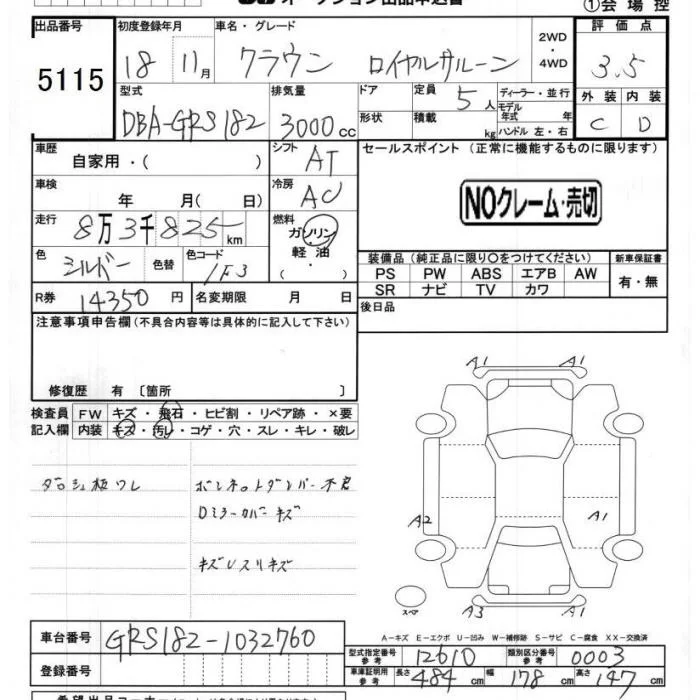 オークション出品申込書
①会場控
出品番号 初度登録年月 車名・グレード 2WD・4WD 評価点
5115 18 11月 クラウン ロイヤルサルーン 3.5
型式 排気量 ドア 定員 5人 ディーラー・並行 外装 内装
DBA-GRS182 3000cc 形状 積載 kg モデル年式 年 ハンドル 左・右 C D
車歴 自家用・( ) シフト AT セールスポイント (正常に機能するものに限ります)
車検 年 月( 日) 冷房 AC NOクレーム・売切
走行 8万3千825km 燃料 ガソリン・軽油・( )
色 シルバー 色替 色コード 1F3 装備品(純正品に限り〇をつけてください) 新車保証書
PS PW ABS エアB AW 有・無
SR ナビ TV カワ
R券 14350円 名変期限 月 日 後日品
注意事項申告欄(不具合内容等は具体的に記入して下さい)
修復歴 有 〔箇所 〕
検査員 FW キズ・飛石・ヒビ割・リペア跡・×要
記入欄 内装 キズ・汚レ・コゲ・穴・スレ・キレ・破レ
ボンネットダンパー不良
Dミラーカバーキズ
A1 A1
A2 A1
スペア
A3 A1
A-キズ E-エクボ U-凹み W-補修跡 S-サビ C-腐食 XX-交換済
車台番号 GRS182-1032760
型式指定番号 参考 12610 類別区分番号 参考 0003
登録番号
車庫証明用 参考 長さ 484cm 幅 178cm 高さ 147cm